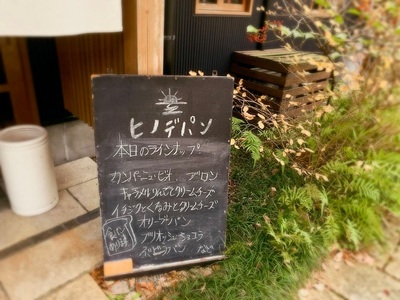 ヒノデパン
本日のラインナップ
カンパーニュ・ビオ ブロン
キャラメルりんごとクリームチーズ
イチジクとくるみとクリームチーズ
オリーブパン
ブリオッシュ・ショコラ
パン など